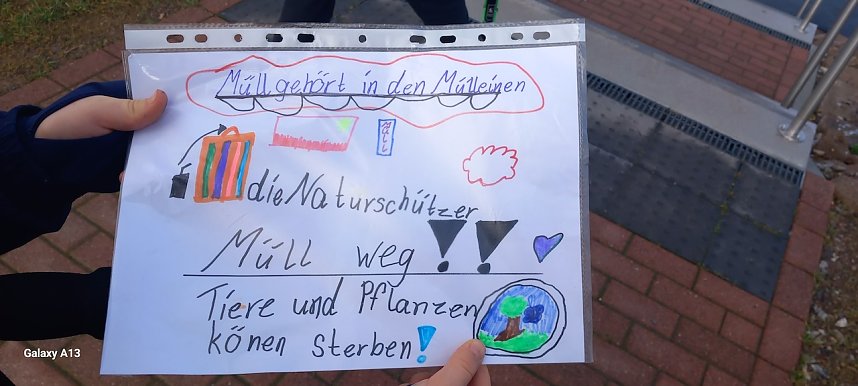 Müll gehört in den Mülleinen
Müll
die Naturschützer
Müll weg!!
Tiere und Pflanzen
könen sterben!
Galaxy A13